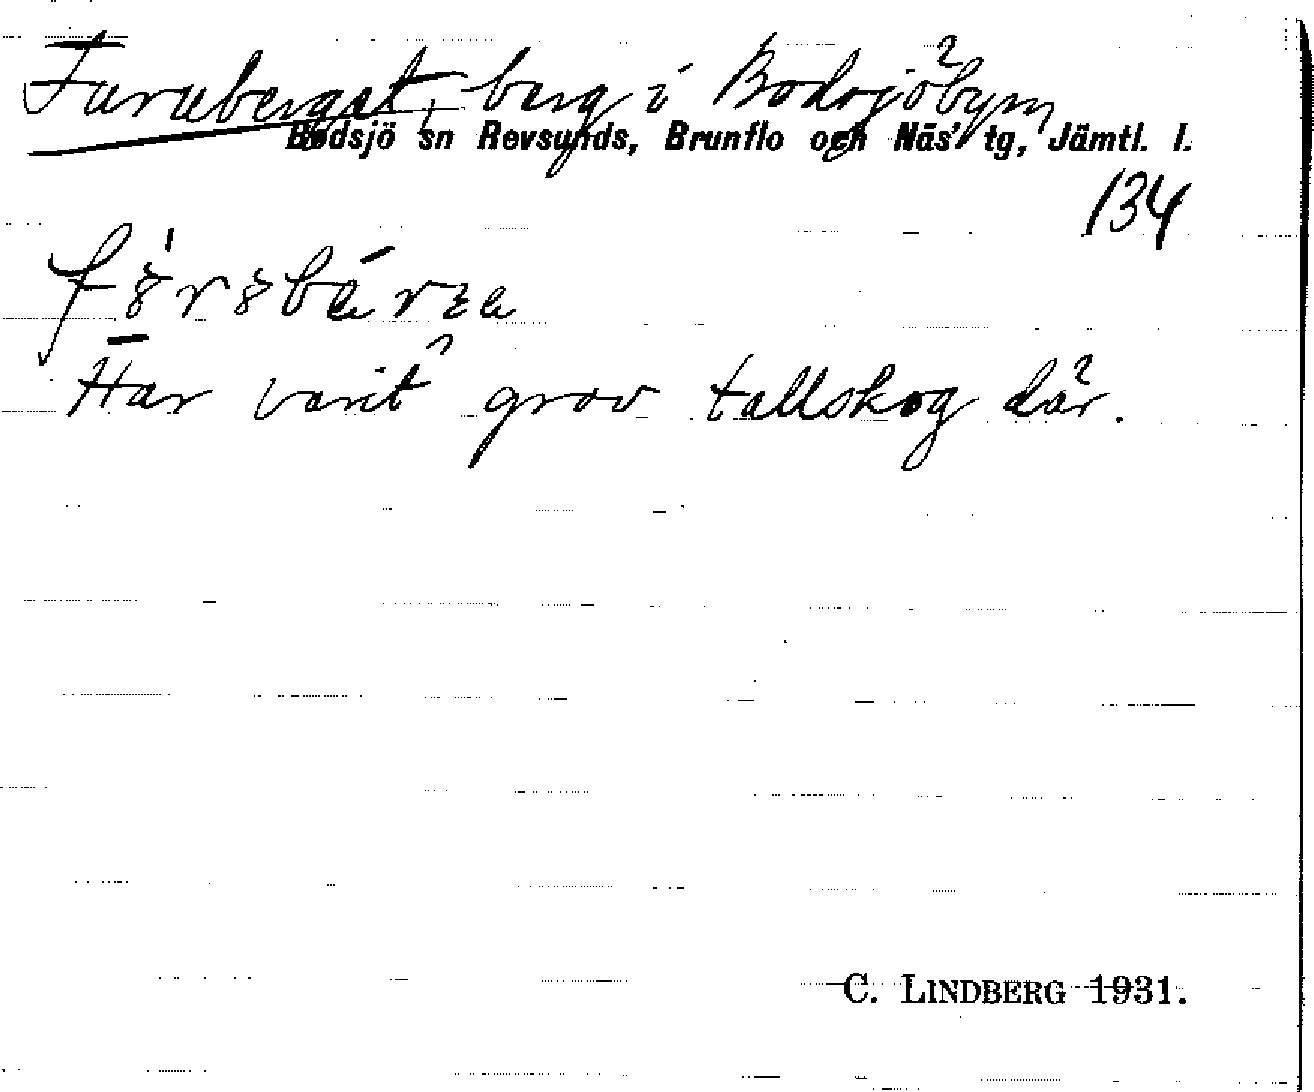 Furuberget, berg i Bodsjöbyn
Bodsjö sn Revsunds, Brunflo och Näs' tg, Jämtl. l.
134
Har varit grov tallskog där.
C. LINDBERG 1931.